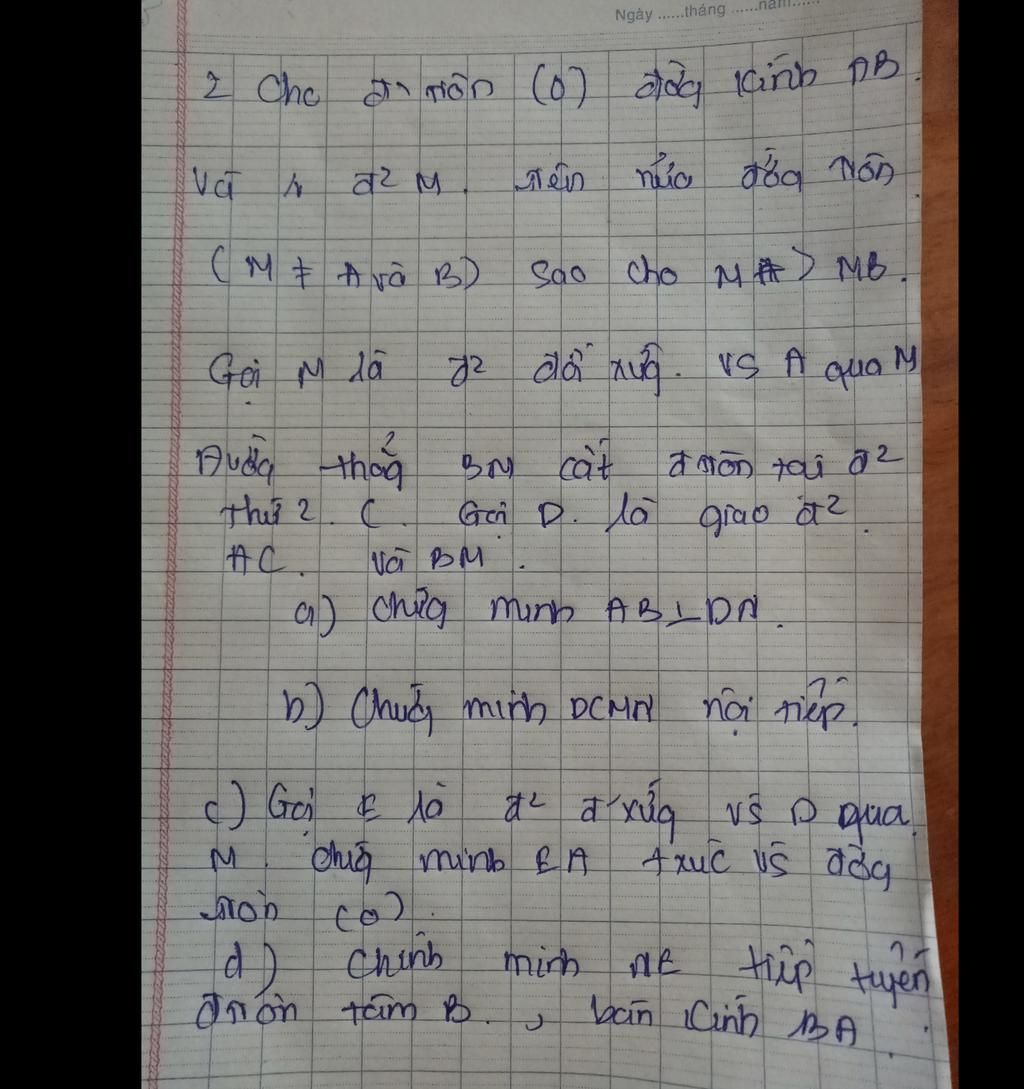 Ngày ......tháng ......năm......
2 Cho đ' tròn (O) đờg kính AB.
Và 1 đ² M. trên nửa đờg tròn
(M ≠ A và B) sao cho MA > MB.
Gọi N là đ² đối xứg. vs A qua M
Đườg thẳg BN cắt đ tròn tại đ²
thứ 2. C. Gọi D. là giao đ²
AC. Và BM.
a) Chứg minh AB ⊥ DN.
b) Chứg minh DCMN nội tiếp.
c) Gọi E là đ² đ' xứg vs D qua
M. Chứg minh EA t xúc vs đờg
tròn (O).
d) Chứnh minh NE tiếp tuyến
đ tròn tâm B., bán kính BA.